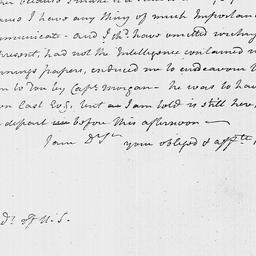 ano I have any thing of much Importan
mmunicate - and I shd have omitted writing
present, had not the Intelligence contained in
nnings papers, induced me to endeavour t
n to You by Capt Morgan - he was to hav
on last Evg, but as I am told is still here,
depart before this afternoon -
I am Dr Sir your obliged & affte
dt of U.S.